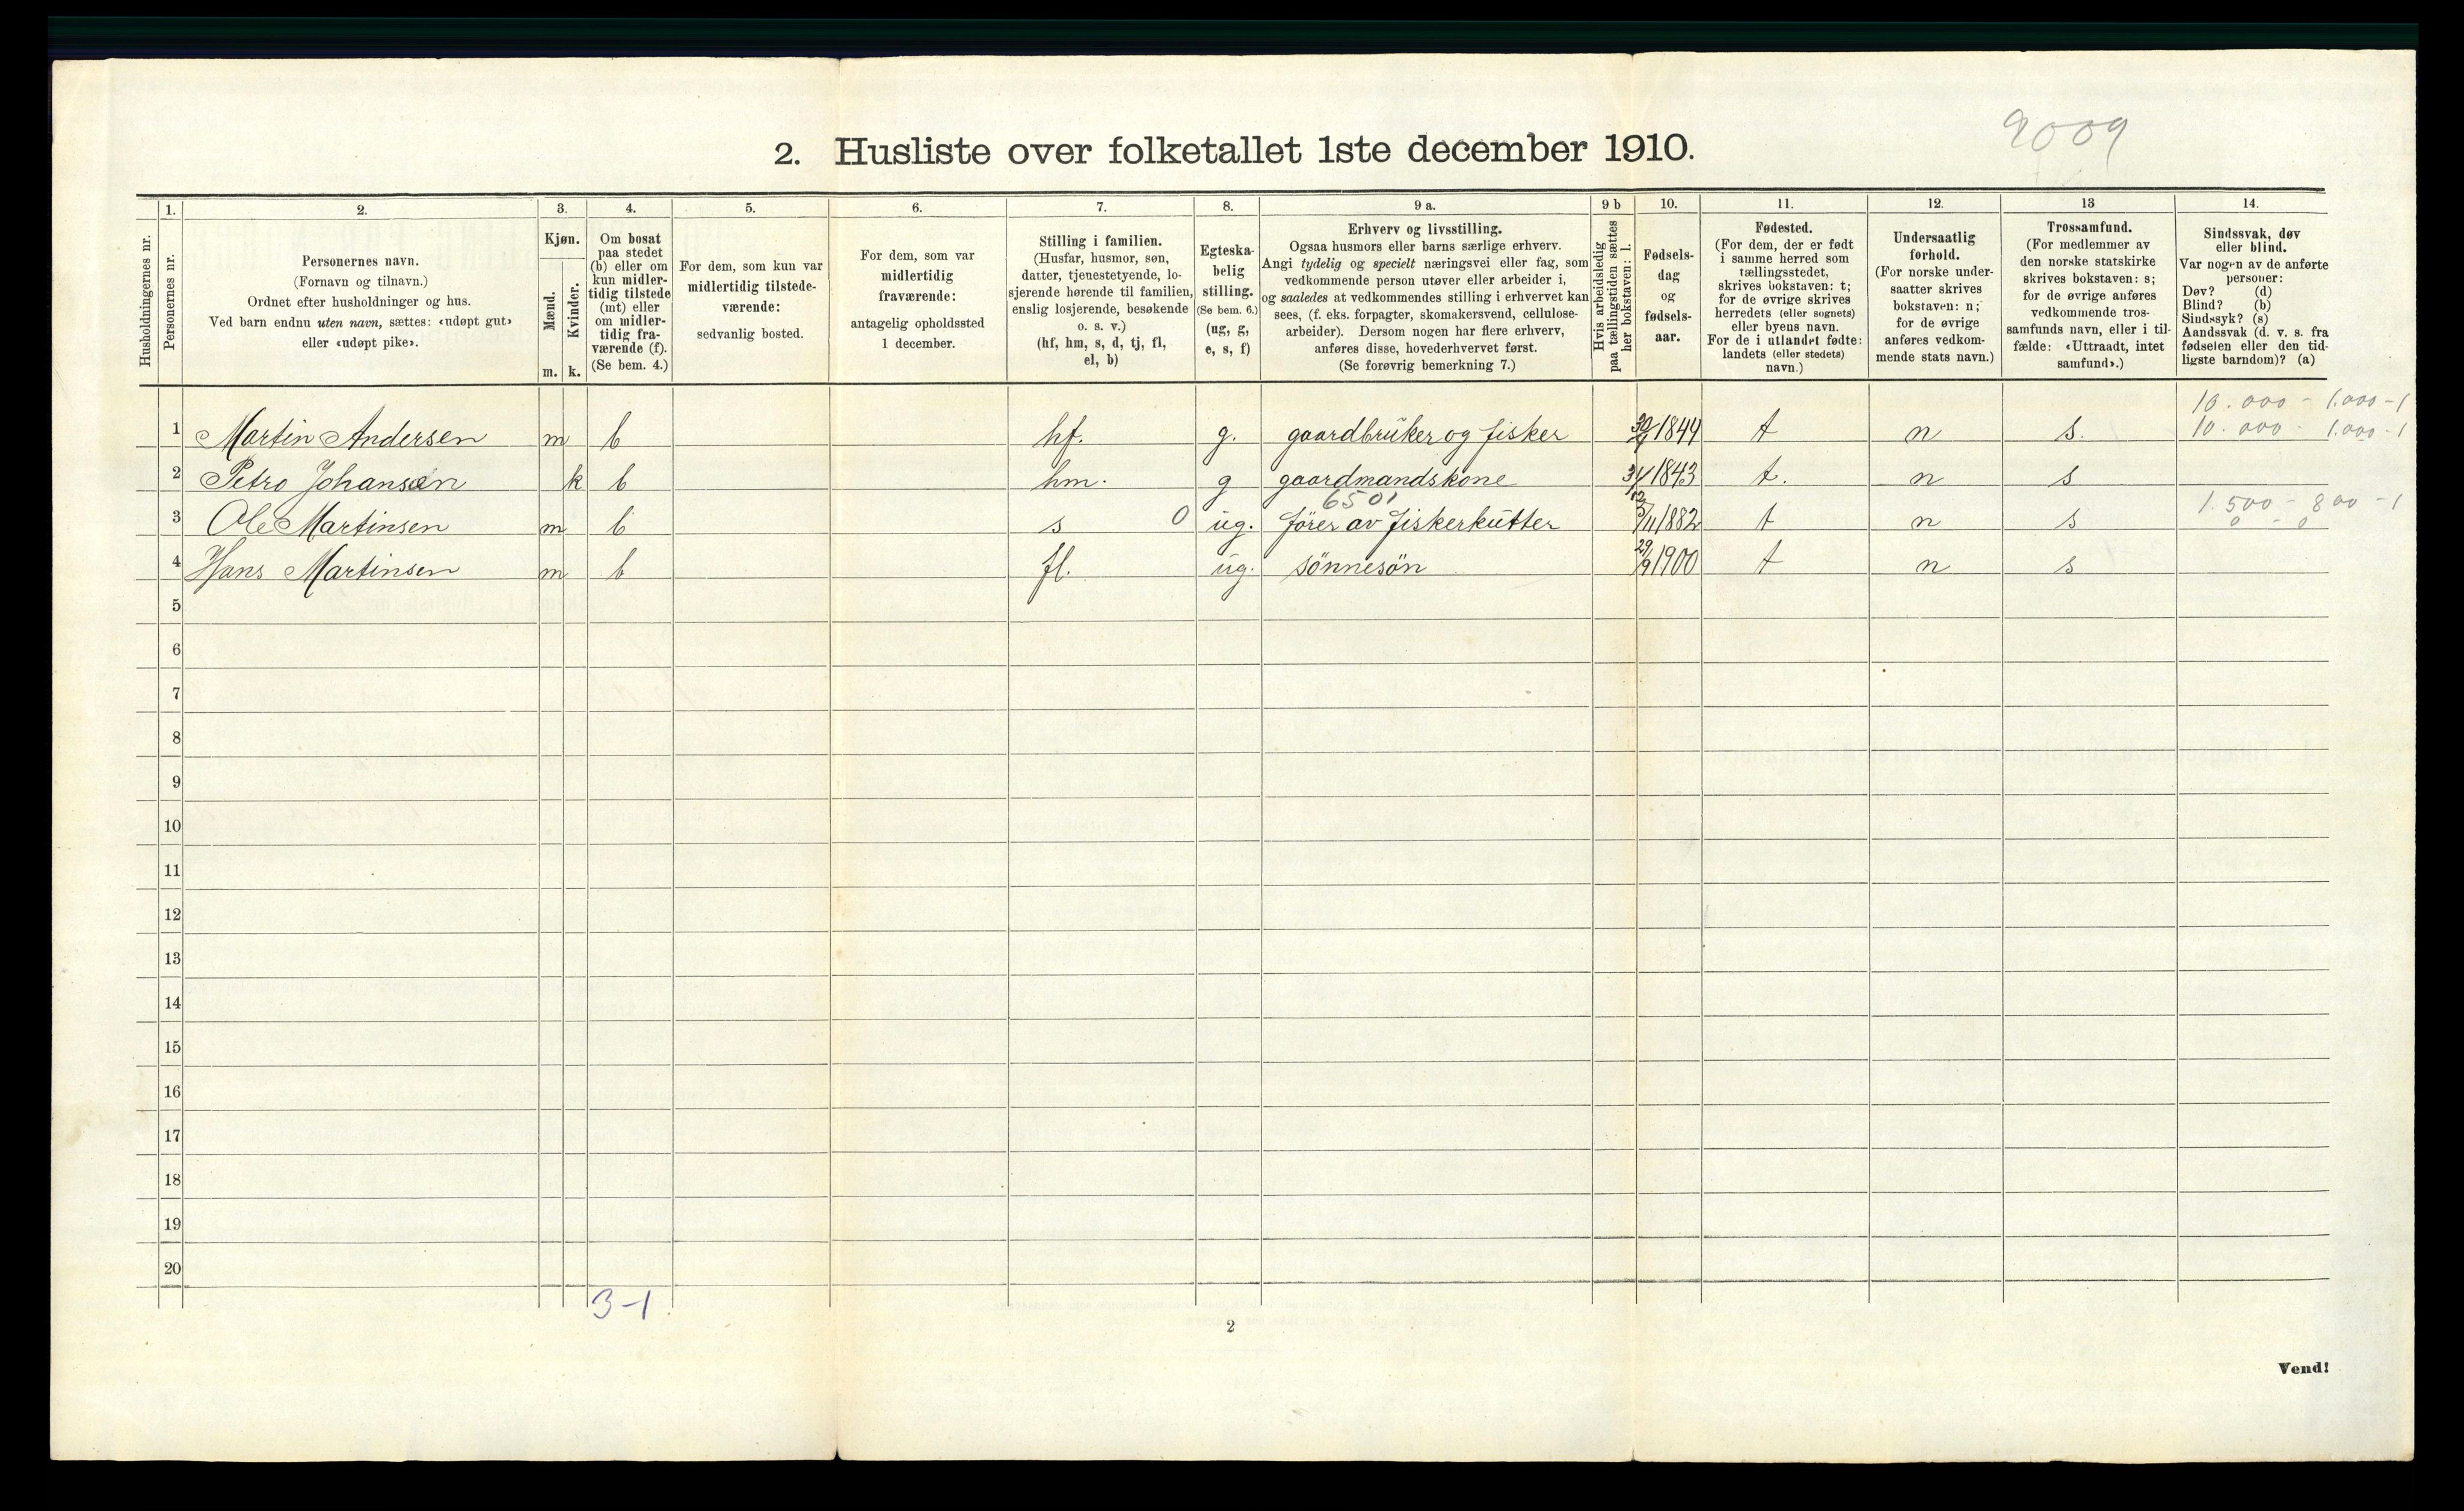 9009
2. Husliste over folketallet 1ste december 1910.
Husholdningernes nr.
1.
Personernes nr.
2.
Personernes navn.
(Fornavn og tilnavn.)
Ordnet efter husholdninger og hus.
Ved barn endnu uten navn, sættes: «udøpt gut»
eller «udøpt pike».
3.
Kjøn.
Mænd.
Kvinder.
m. k.
4.
Om bosat
paa stedet
(b) eller om
kun midler-
tidig tilstede
(mt) eller
om midler-
tidig fra-
værende (f).
(Se bem. 4.)
5.
For dem, som kun var
midlertidig tilstede-
værende:
sedvanlig bosted.
6.
For dem, som var
midlertidig
fraværende:
antagelig opholdssted
1 december.
7.
Stilling i familien.
(Husfar, husmor, søn,
datter, tjenestetyende, lo-
sjerende hørende til familien,
enslig losjerende, besøkende
o. s. v.)
(hf, hm, s, d, tj, fl,
el, b)
8.
Egteska-
belig
stilling.
(Se bem. 6.)
(ug, g,
e, s, f)
9 a.
Erhverv og livsstilling.
Ogsaa husmors eller barns særlige erhverv.
Angi tydelig og specielt næringsvei eller fag, som
vedkommende person utøver eller arbeider i,
og saaledes at vedkommendes stilling i erhvervet kan
sees, (f. eks. forpagter, skomakersvend, cellulose-
arbeider). Dersom nogen har flere erhverv,
anføres disse, hovederhvervet først.
(Se forøvrig bemerkning 7.)
9 b
Hvis arbeidsledig
paa tællingstiden sættes
her bokstaven: l.
10.
Fødsels-
dag
og
fødsels-
aar.
11.
Fødested.
(For dem, der er født
i samme herred som
tællingsstedet,
skrives bokstaven: t;
for de øvrige skrives
herredets (eller sognets)
eller byens navn.
For de i utlandet fødte:
landets (eller stedets)
navn.)
12.
Undersaatlig
forhold.
(For norske under-
saatter skrives
bokstaven: n;
for de øvrige
anføres vedkom-
mende stats navn.)
13
Trossamfund.
(For medlemmer av
den norske statskirke
skrives bokstaven: s;
for de øvrige anføres
vedkommende tros-
samfunds navn, eller i til-
fælde: «Uttraadt, intet
samfund».)
14.
Sindssvak, døv
eller blind.
Var nogen av de anførte
personer:
Døv? (d)
Blind? (b)
Sindssyk? (s)
Aandssvak (d. v. s. fra
fødselen eller den tid-
ligste barndom)? (a)
10.000 - 1.000 - 1
1 Martin Andersen m b hf. g. gaardbruker og fisker 30/4 1844 t n s. 10.000 - 1.000 - 1
2 Petro Johansen k b hm. g gaardmandskone 1843 t. n s
6501
1.500 - 800 - 1
3 Ole Martinsen m b s 0 ug. förer av fiskerkutter 1882 t n s 0 - 0
4 Hans Martinsen m b fl. ug. sönnesön 29/9 1900 t n s
5
6
7
8
9
10
11
12
13
14
15
16
17
18
19
20
3-1
2
Vend!